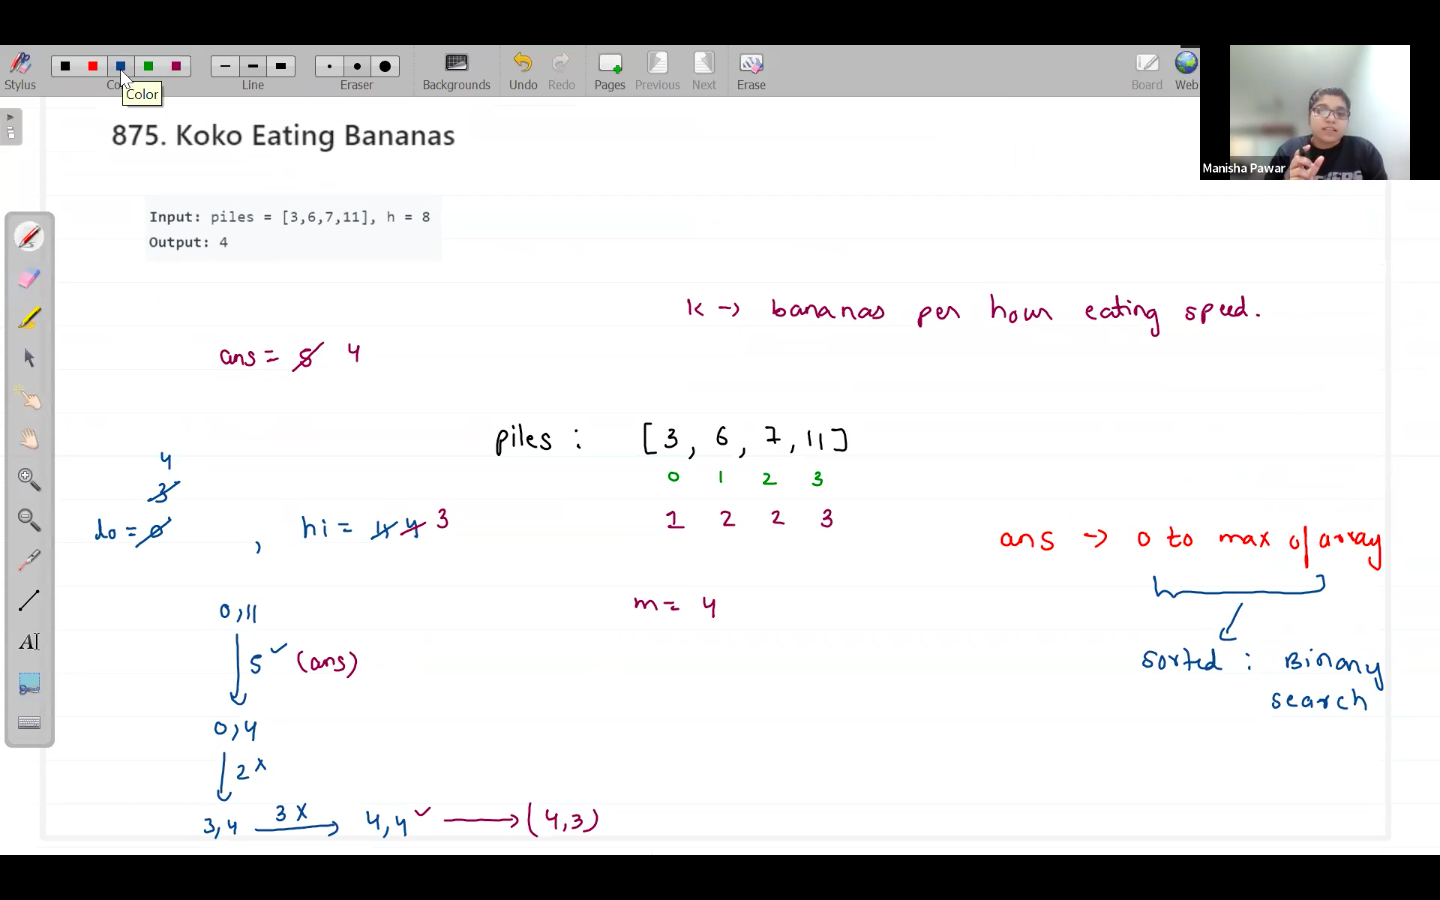 Stylus
Color
Line
Eraser
Backgrounds
Undo
Redo
Pages
Previous
Next
Erase
Board
Web
Color
Manisha Pawar
875. Koko Eating Bananas
Input: piles = [3,6,7,11], h = 8
Output: 4
K -> bananas per hour eating speed.
ans = 5 4
piles : [3, 6, 7, 11]
0 1 2 3
1 2 2 3
4
3
lo = 0 , hi = 11 4 3
ans -> 0 to max of array
sorted : Binary
search
m = 4
0,11
5 ✓ (ans)
0,4
2 x
3,4 3 x 4,4 ✓ (4,3)
AI